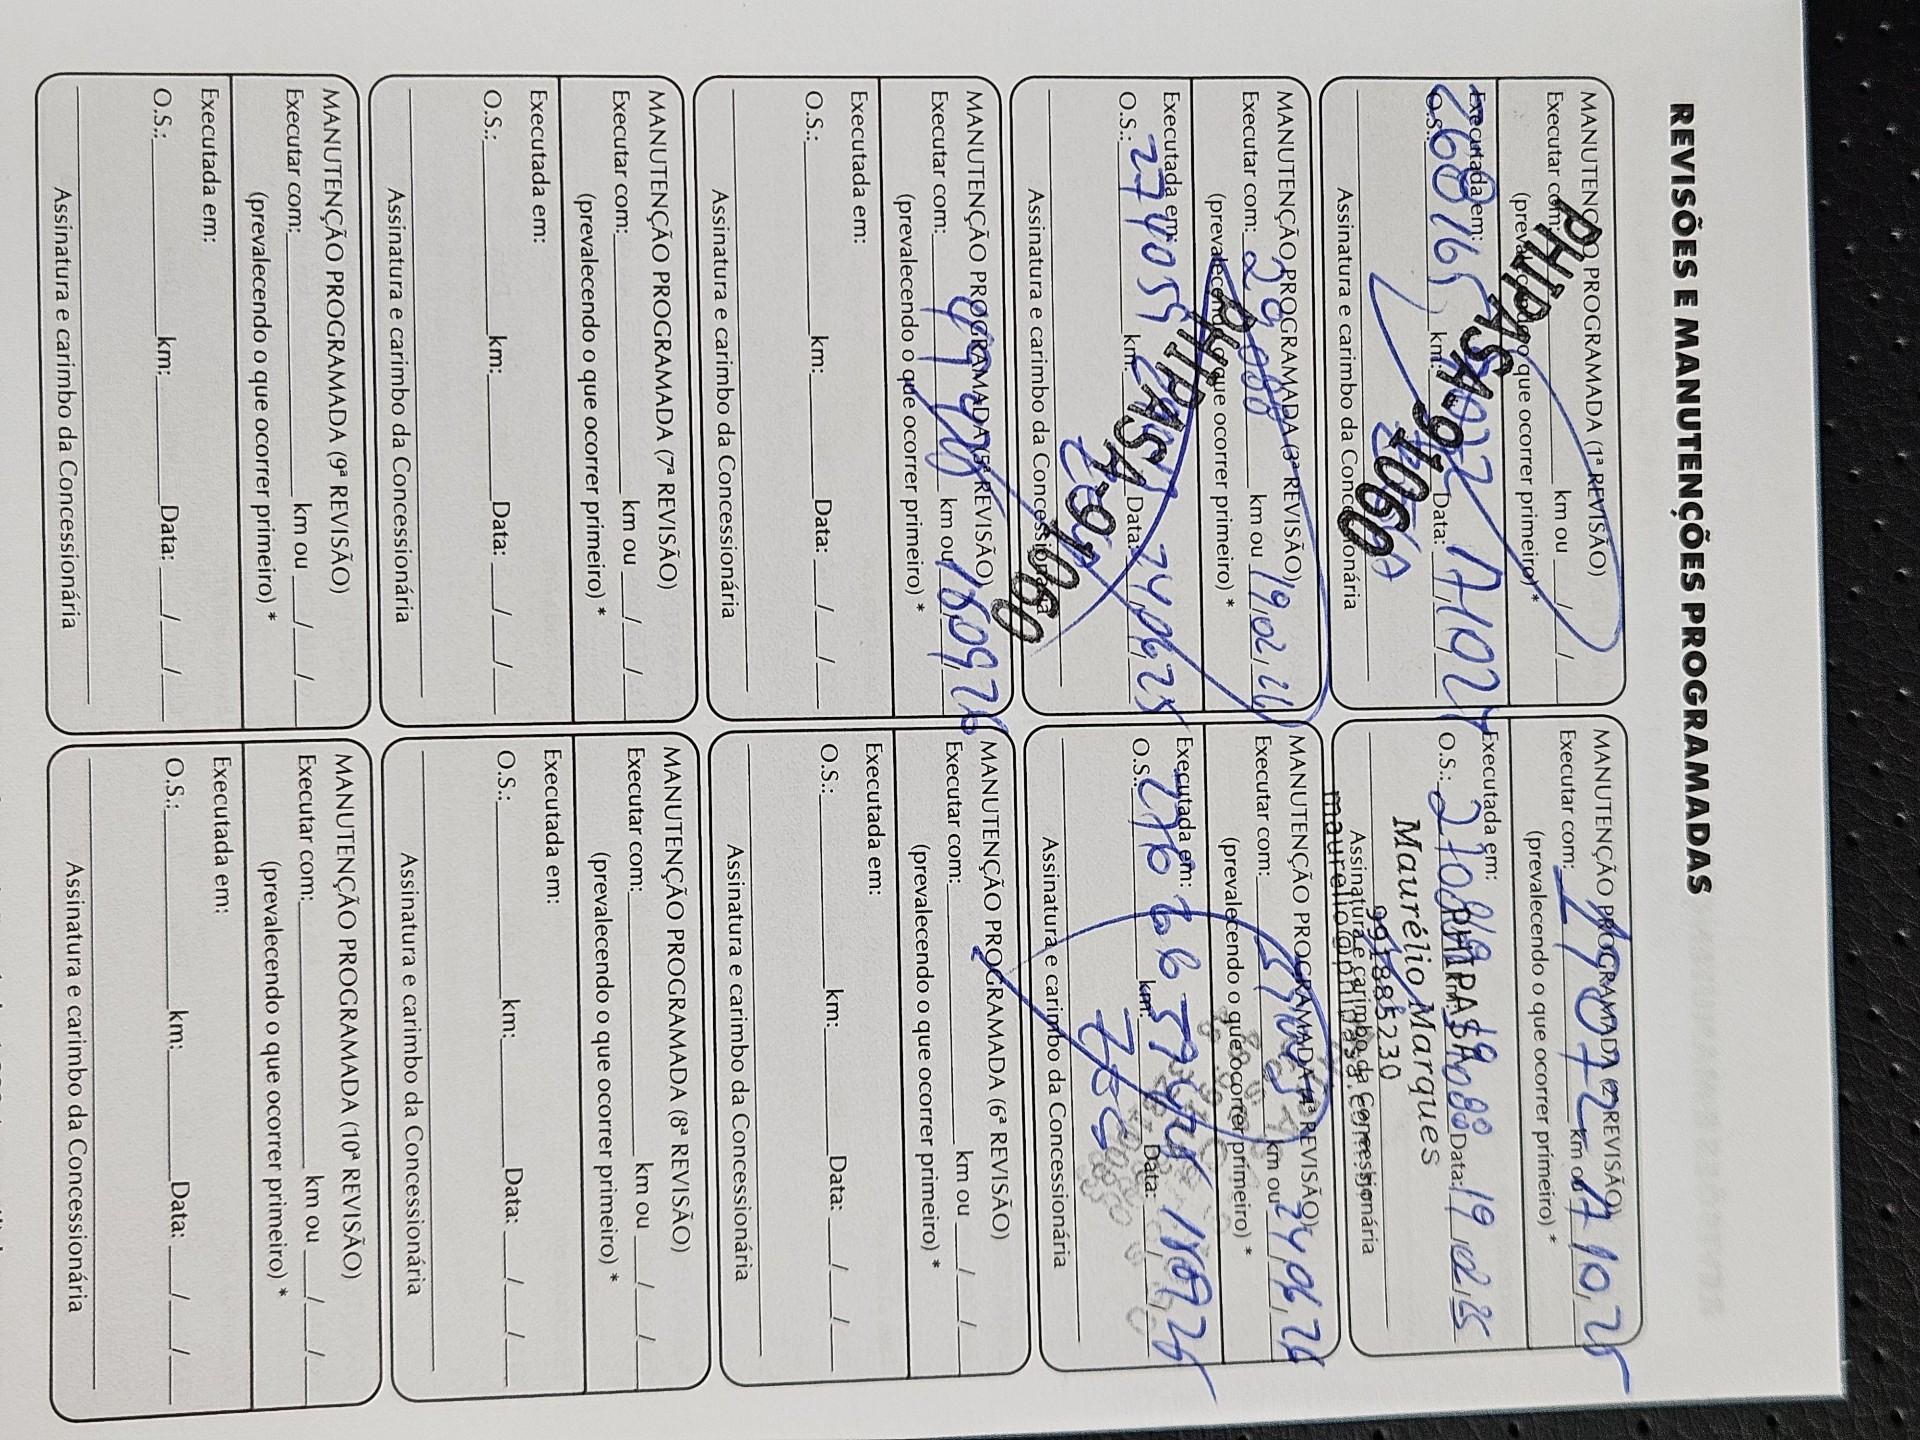 REVISÕES E MANUTENÇÕES PROGRAMADAS
MANUTENÇÃO PROGRAMADA (1ª REVISÃO)
Executar com: km ou / /
(prevalecendo o que ocorrer primeiro) *
PHIPASA-91060
Executada em:
O.S.: 268765 km: Data:
Assinatura e carimbo da Concessionária
MANUTENÇÃO PROGRAMADA REVISÃO)
Executar com: km ou
(prevalecendo o que ocorrer primeiro) *
Executada em:
O.S.: Data: 19/02/25
PHIPASA
Maurélio Marques
991885230
Assinatura e carimbo da Concessionária
MANUTENÇÃO PROGRAMADA (3ª REVISÃO)
Executar com: km ou 19/02/26
(prevalecendo o que ocorrer primeiro) *
PHIPASA-91060
Executada em:
O.S.: 274055 km: Data: 24/06/25
Assinatura e carimbo da Concessionária
MANUTENÇÃO PROGRAMADA (4ª REVISÃO)
Executar com: km ou 24/06/26
(prevalecendo o que ocorrer primeiro) *
Executada em:
O.S.: km: Data:
Assinatura e carimbo da Concessionária
MANUTENÇÃO PROGRAMADA (5ª REVISÃO)
Executar com: km ou
(prevalecendo o que ocorrer primeiro) *
Executada em:
O.S.: km: Data: / /
Assinatura e carimbo da Concessionária
MANUTENÇÃO PROGRAMADA (6ª REVISÃO)
Executar com: km ou / /
(prevalecendo o que ocorrer primeiro) *
Executada em:
O.S.: km: Data: / /
Assinatura e carimbo da Concessionária
MANUTENÇÃO PROGRAMADA (7ª REVISÃO)
Executar com: km ou / /
(prevalecendo o que ocorrer primeiro) *
Executada em:
O.S.: km: Data: / /
Assinatura e carimbo da Concessionária
MANUTENÇÃO PROGRAMADA (8ª REVISÃO)
Executar com: km ou / /
(prevalecendo o que ocorrer primeiro) *
Executada em:
O.S.: km: Data: / /
Assinatura e carimbo da Concessionária
MANUTENÇÃO PROGRAMADA (9ª REVISÃO)
Executar com: km ou / /
(prevalecendo o que ocorrer primeiro) *
Executada em:
O.S.: km: Data: / /
Assinatura e carimbo da Concessionária
MANUTENÇÃO PROGRAMADA (10ª REVISÃO)
Executar com: km ou / /
(prevalecendo o que ocorrer primeiro) *
Executada em:
O.S.: km: Data: / /
Assinatura e carimbo da Concessionária